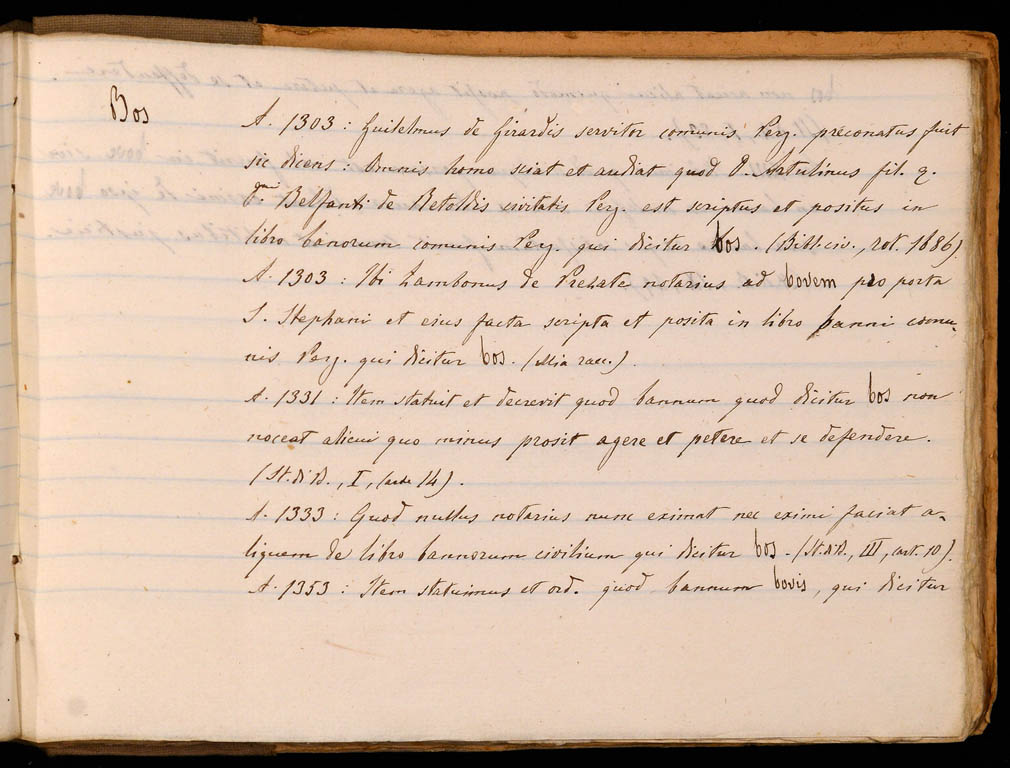 Bos
A. 1303 : Guielmus de Girardis servitor comunis Perg. preconatus fuit
sic dicens : Omnis homo sciat et audiat quod D. Artulinus fil. q.
D. Belfanti de Betoldis civitatis Perg. est scriptus et positus in
libro banorum comunis Perg. qui dicitur bos. (Bibl. civ., rot. 1886).
A. 1303 : Ibi Zambonus de Prezate notarius ad bovem pro porta
S. Stephani et eius facta scripta et posita in libro banni comu-
nis Perg. qui dicitur bos. (Mia racc.).
A. 1331 : Item statuit et decrevit quod bannum quod dicitur bos non
noceat alicui quo minus prosit agere et petere et se defendere.
(St. di B., I, 14).
A. 1333 : Quod nullus notarius nunc eximat nec eximi faciat a-
liquem de libro bannorum civilium qui dicitur bos. (St. di B., III, cart. 10).
A. 1353 : Item statuimus et ord. quod bannum bovis, qui dicitur